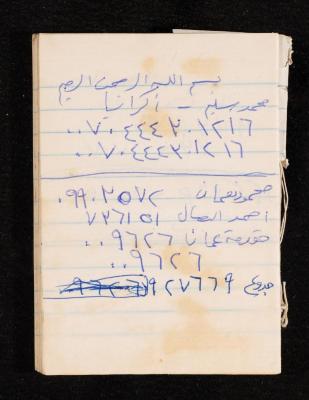 بسم الله الرحمن الرحيم
محمد سليم - أكرانيا
٠٠٧٠٤٤٤٣٠١٢١٦
٠٠٧٠٤٤٤٣٠١٢١٦
محمود نعمان ٠٩٩٠٢٥٧٢
احمد ٧٣٦١٥١
مقدمة عمان ٠٠٩٦٢٦
٠٠٩٦٢٦
٩٢٧٦٦٩